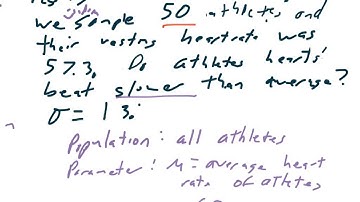 we sample 50 athletes and
their resting heartrate was
57.3. Do athletes hearts'
beat slower than average?
σ = 13.
Population: all athletes
Parameter: μ = average heart
rate of athletes